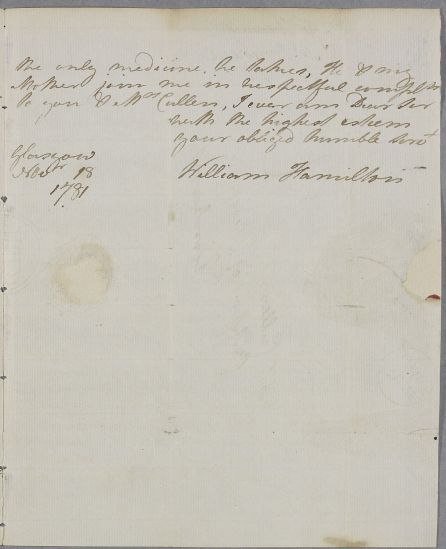 the only medicine he takes, He & my
Mother join me in respectful complts
to you & Mrs Cullen, I ever am Dear Sir
with the highest esteem
your obliged humble Servt
William Hamilton
Glasgow
Novr 18
1781